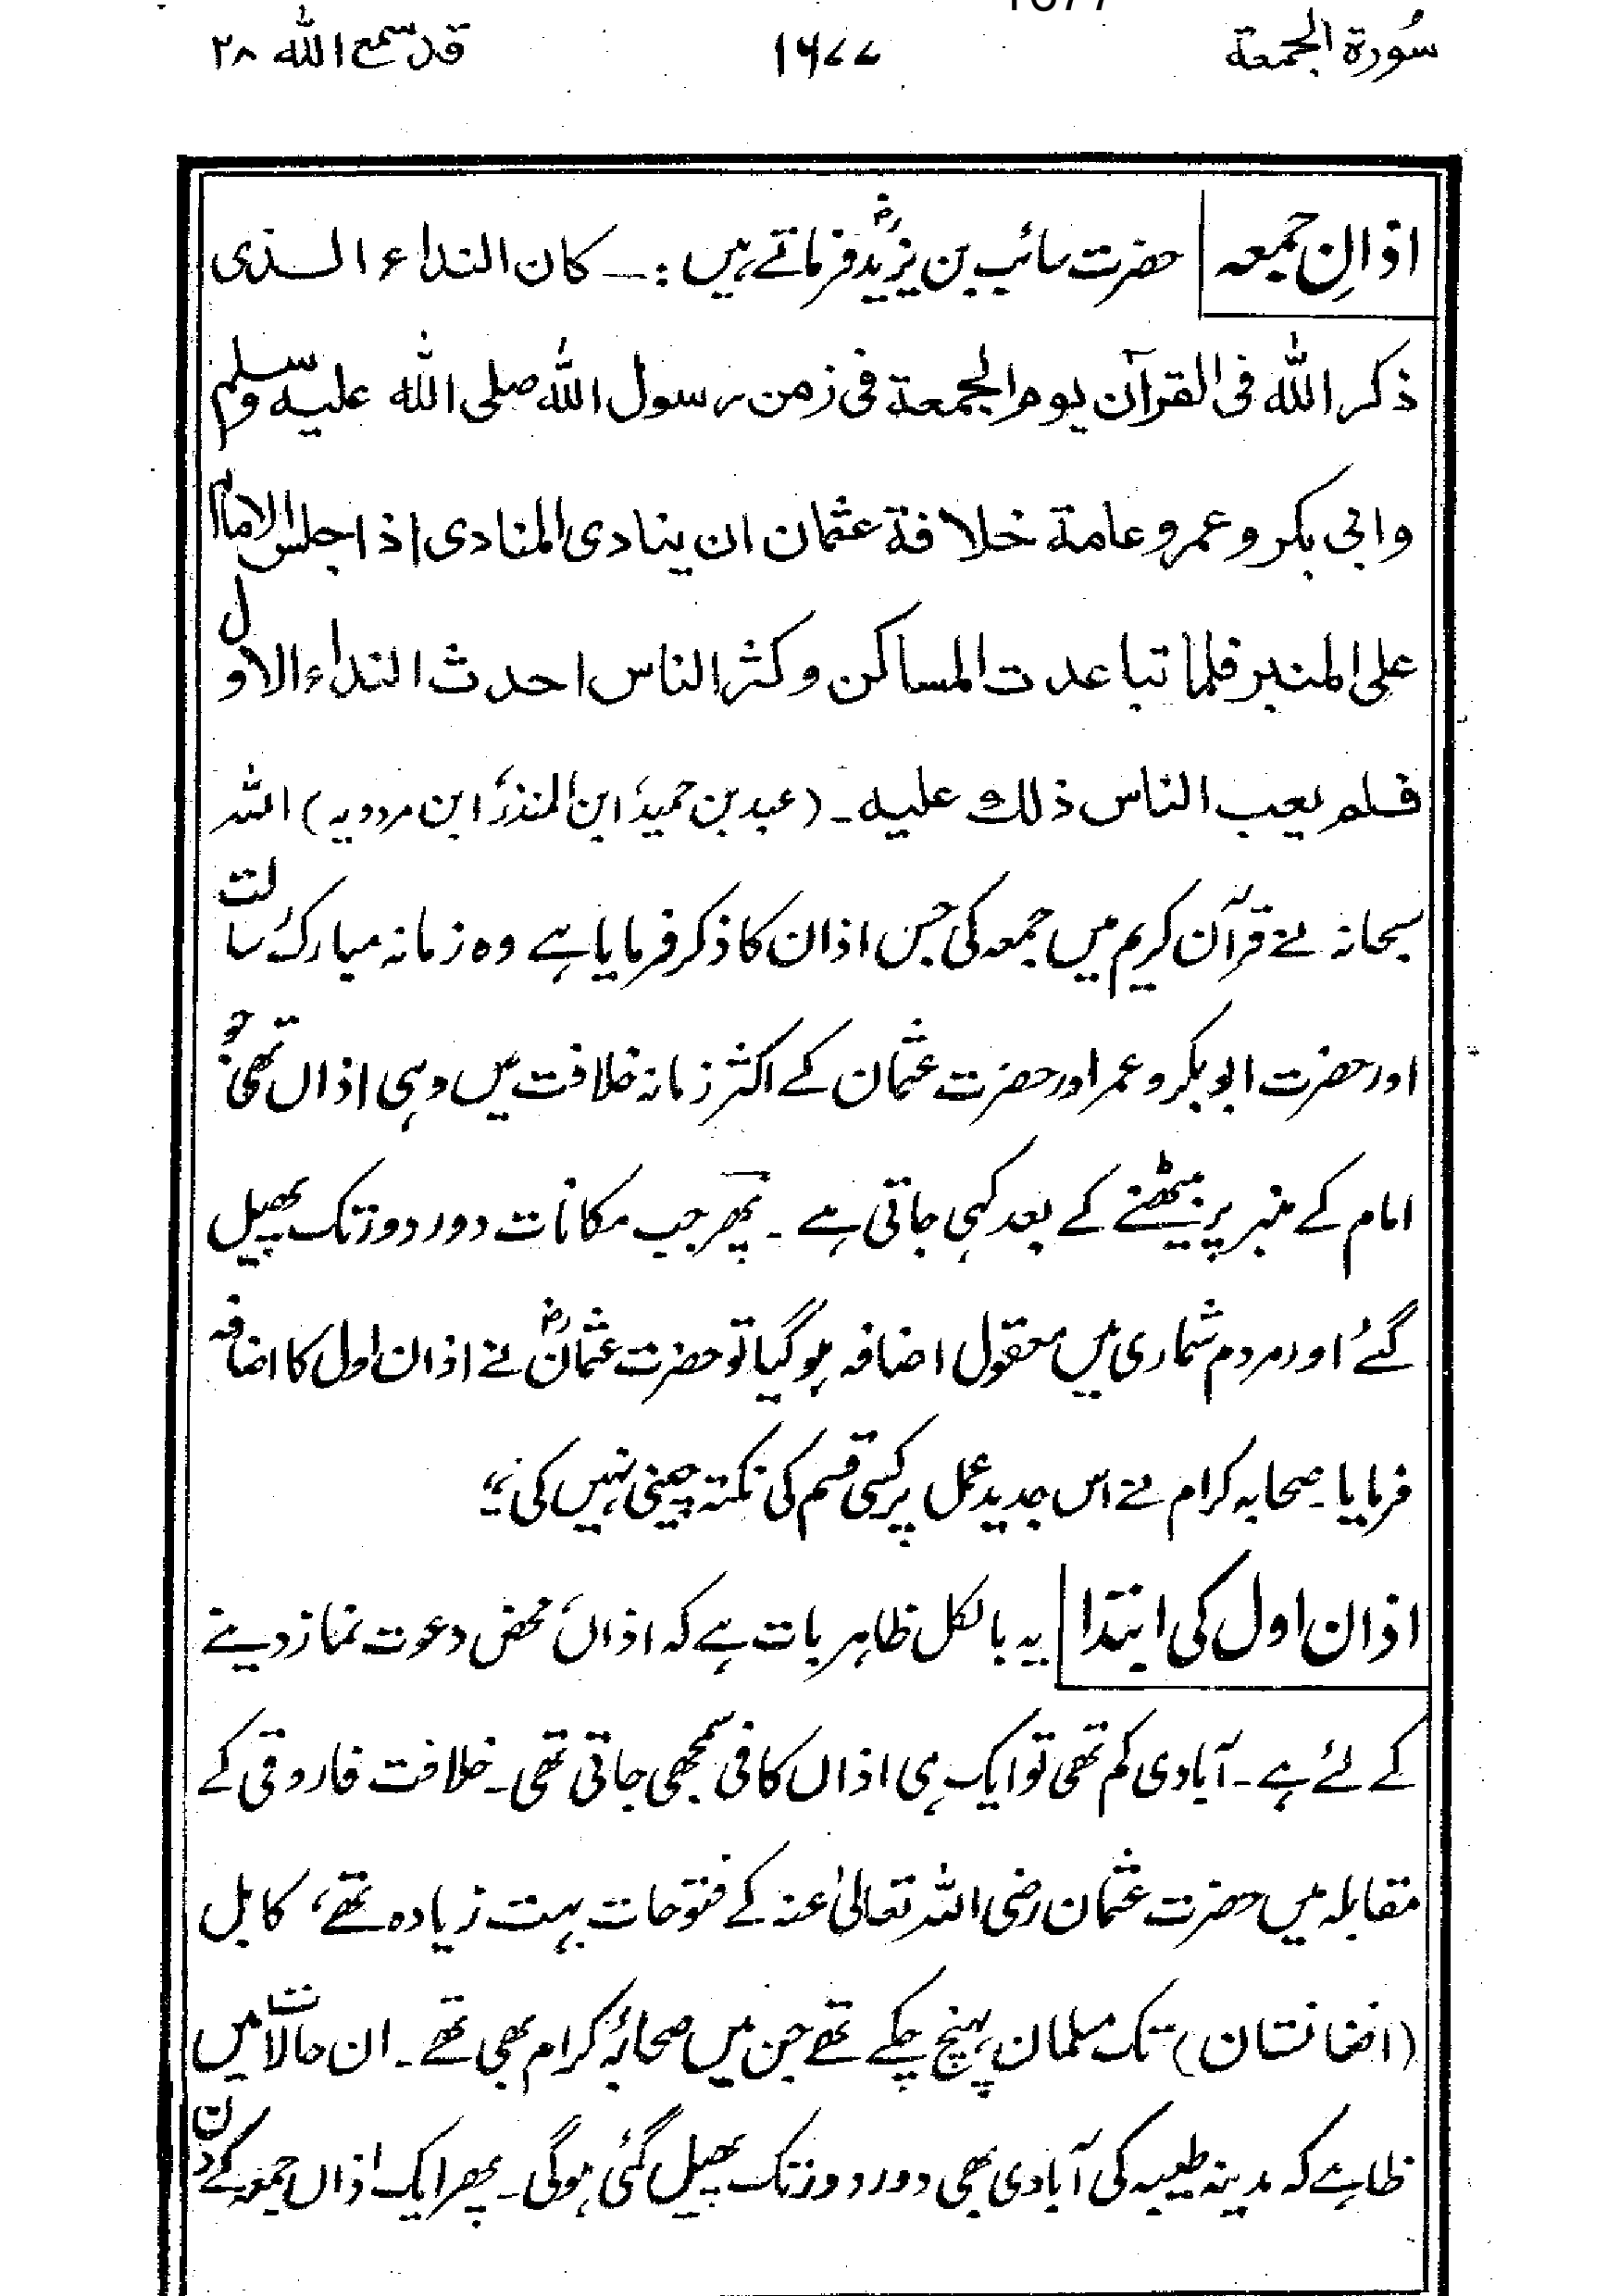 سُورة الجمعة ۱۶۷۷ قد سمع الله ۲۸
اذانِ جمعہ حضرت سائب بن یزیدؓ فرماتے ہیں :۔ كان النداء الـذى
ذكر الله فى القرآن يوم الجمعة فى زمن رسول الله صلى الله عليه وسلم
وابى بكر وعمر وعامة خلافة عثمان ان ينادى المنادى اذا جلس الامام
على المنبر فلما تباعدت المساكن وكثر الناس احدث النداء الاول
فلم يعب الناس ذلك عليه ۔ (عبد بن حمید، ابن المنذر، ابن مردویہ) اللہ
سبحانہ نے قرآن کریم میں جمعہ کی جس اذان کا ذکر فرمایا ہے وہ زمانہ مبارک رسالت
اور حضرت ابوبکر و عمر اور حضرت عثمان کے اکثر زمانہ خلافت میں وہی اذاں تھی جو
امام کے منبر پر بیٹھنے کے بعد کہی جاتی ہے ۔ پھر جب مکانات دور دور تک پھیل
گئے اور مردم شماری میں معقول اضافہ ہو گیا تو حضرت عثمانؓ نے اذان اول کا اضافہ
فرمایا ۔ صحابہ کرام نے اس جدید عمل پر کسی قسم کی نکتہ چینی نہیں کی ؛
اذان اول کی ابتدا یہ بالکل ظاہر بات ہے کہ اذاں، محض دعوت نماز دینے
کے لئے ہے ۔ آبادی کم تھی تو ایک ہی اذاں کافی سمجھی جاتی تھی ۔ خلافت فاروقی کے
مقابلہ میں حضرت عثمان رضی اللہ تعالیٰ عنہ کے فتوحات بہت زیادہ تھے، کابل
(افغانستان) تک مسلمان پہنچ چکے تھے جن میں صحابۂ کرام بھی تھے ۔ ان حالات میں
ظاہے کہ مدینہ طیبہ کی آبادی بھی دور دور تک پھیل گئی ہوگی ۔ پھر ایک اذاں جمعہ کے دن